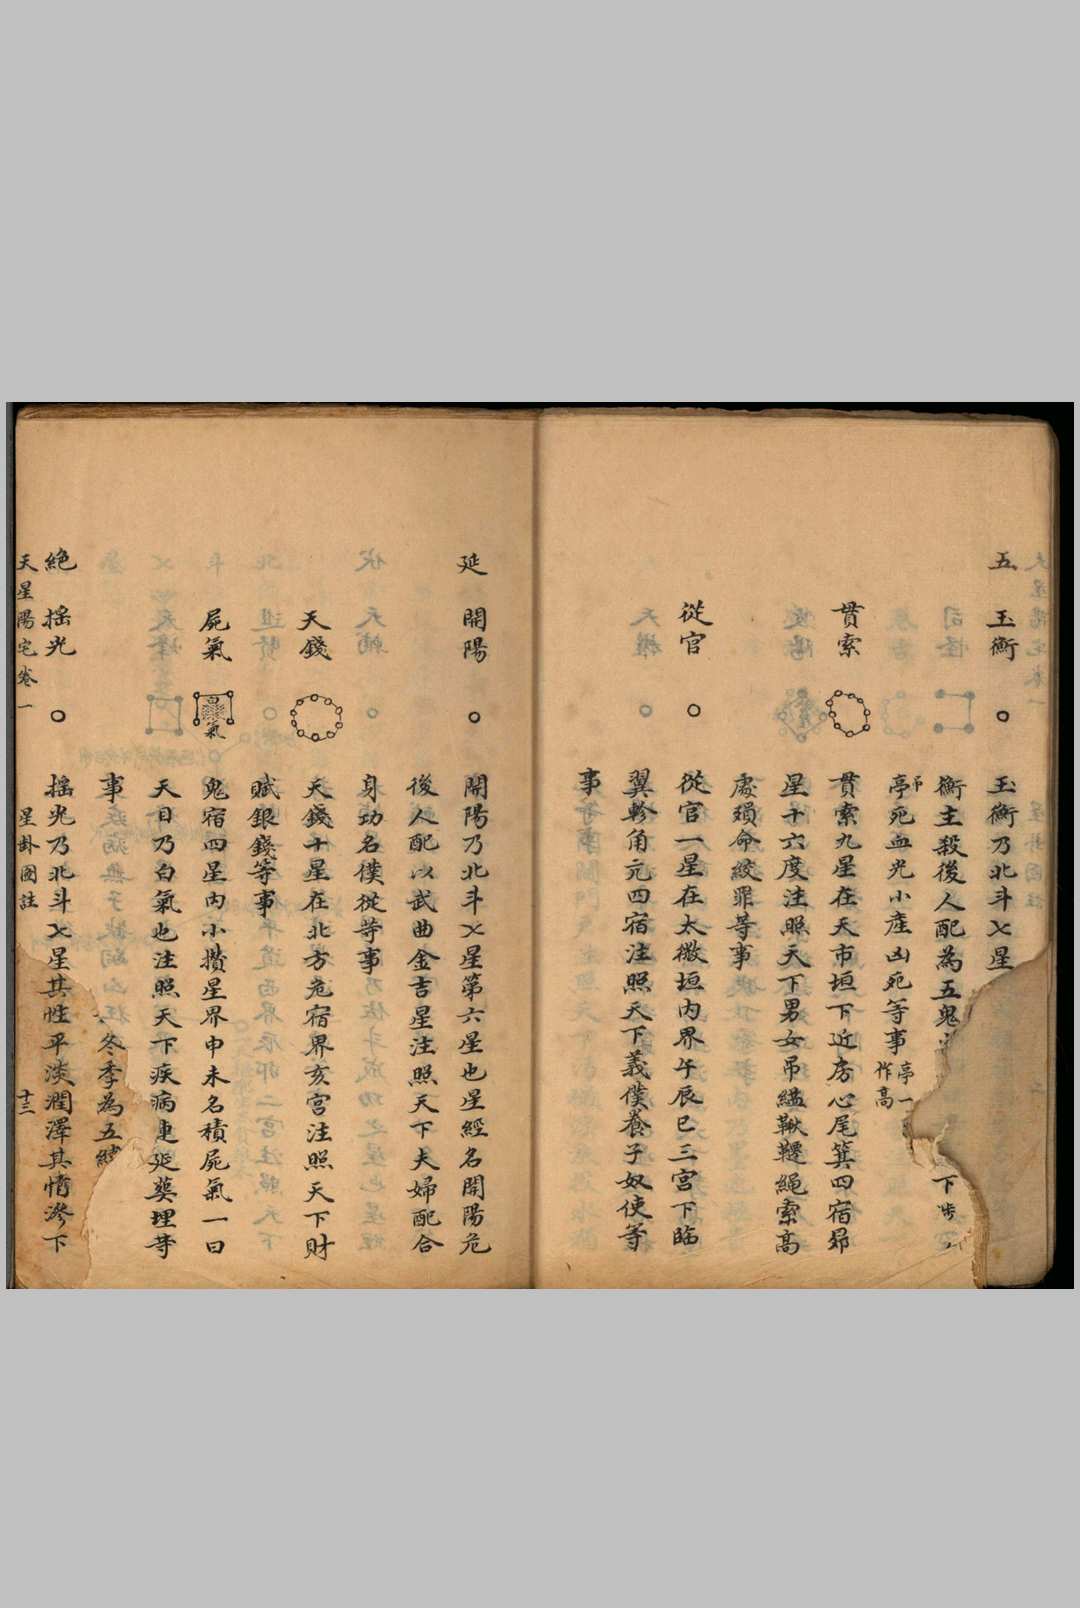 五 玉衡 玉衡乃北斗七星
衡主殺後人配為五鬼 下
亭死血光小産凶死等事 亭一作高
貫索 貫索九星在天市垣下近房心尾箕四宿昴
星十六度注照天下男女吊縊鞦韆繩索高
處殞命絞罪等事
從官 從官一星在太微垣内界午辰巳三宮下臨
翼軫角亢四宿注照天下義僕養子奴使等
事
延 開陽 開陽乃北斗七星第六星也星經名開陽危
後人配以武曲金吉星注照天下夫婦配合
身功名僕從等事
天錢 天錢十星在北方危宿界亥宮注照天下財
賦銀錢等事
屍氣 氣 鬼宿四星内小攢星界申未名積屍氣一曰
天目乃白氣也注照天下疾病連延葬埋等
事 冬季為五
絶 揺光 揺光乃北斗七星其性平淡潤澤其情滲下
天星陽宅卷一 星卦圖註 十三